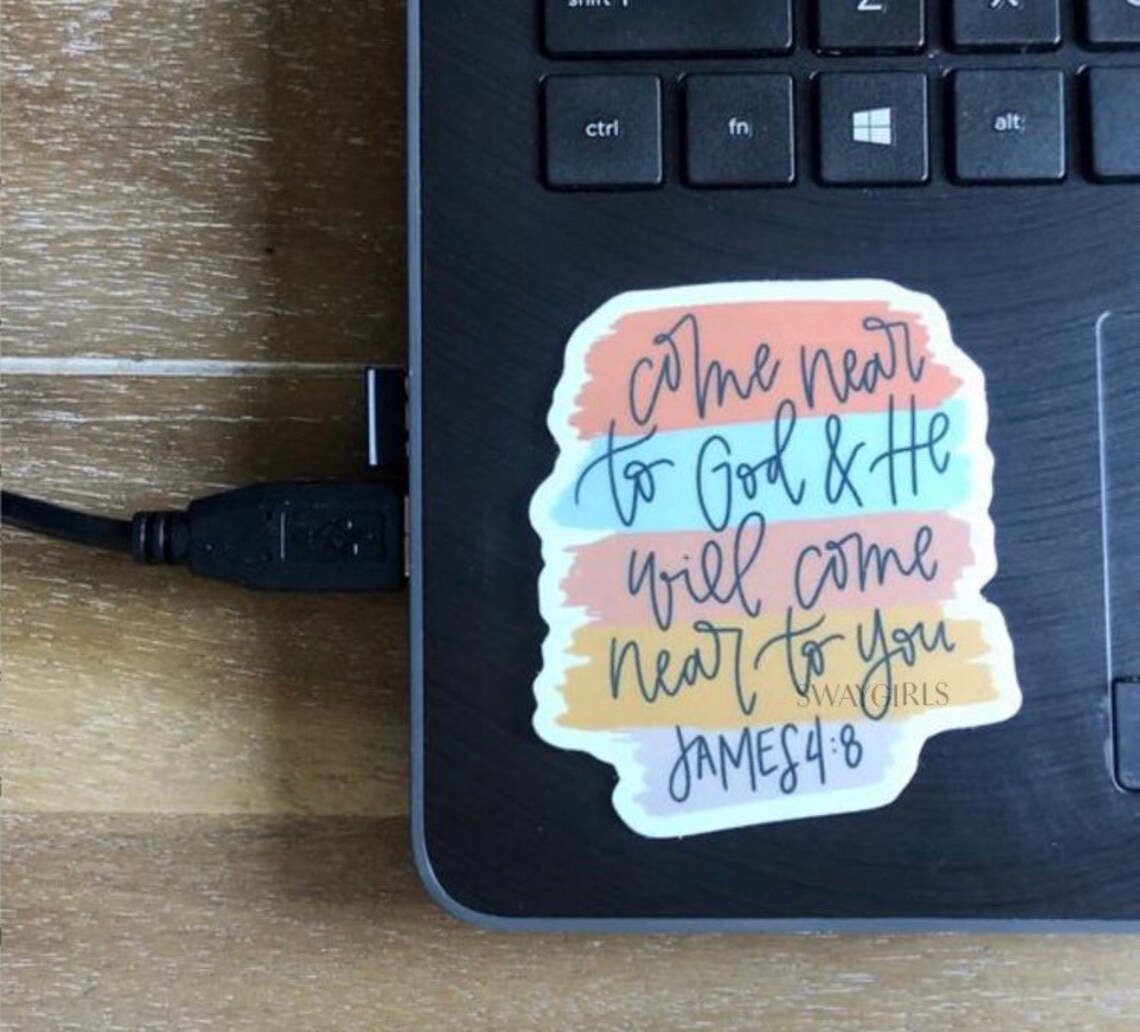 shift
Z
X
ctrl
fn
alt
come near
to God & He
will come
near to you
SWAYGIRLS
JAMES 4:8